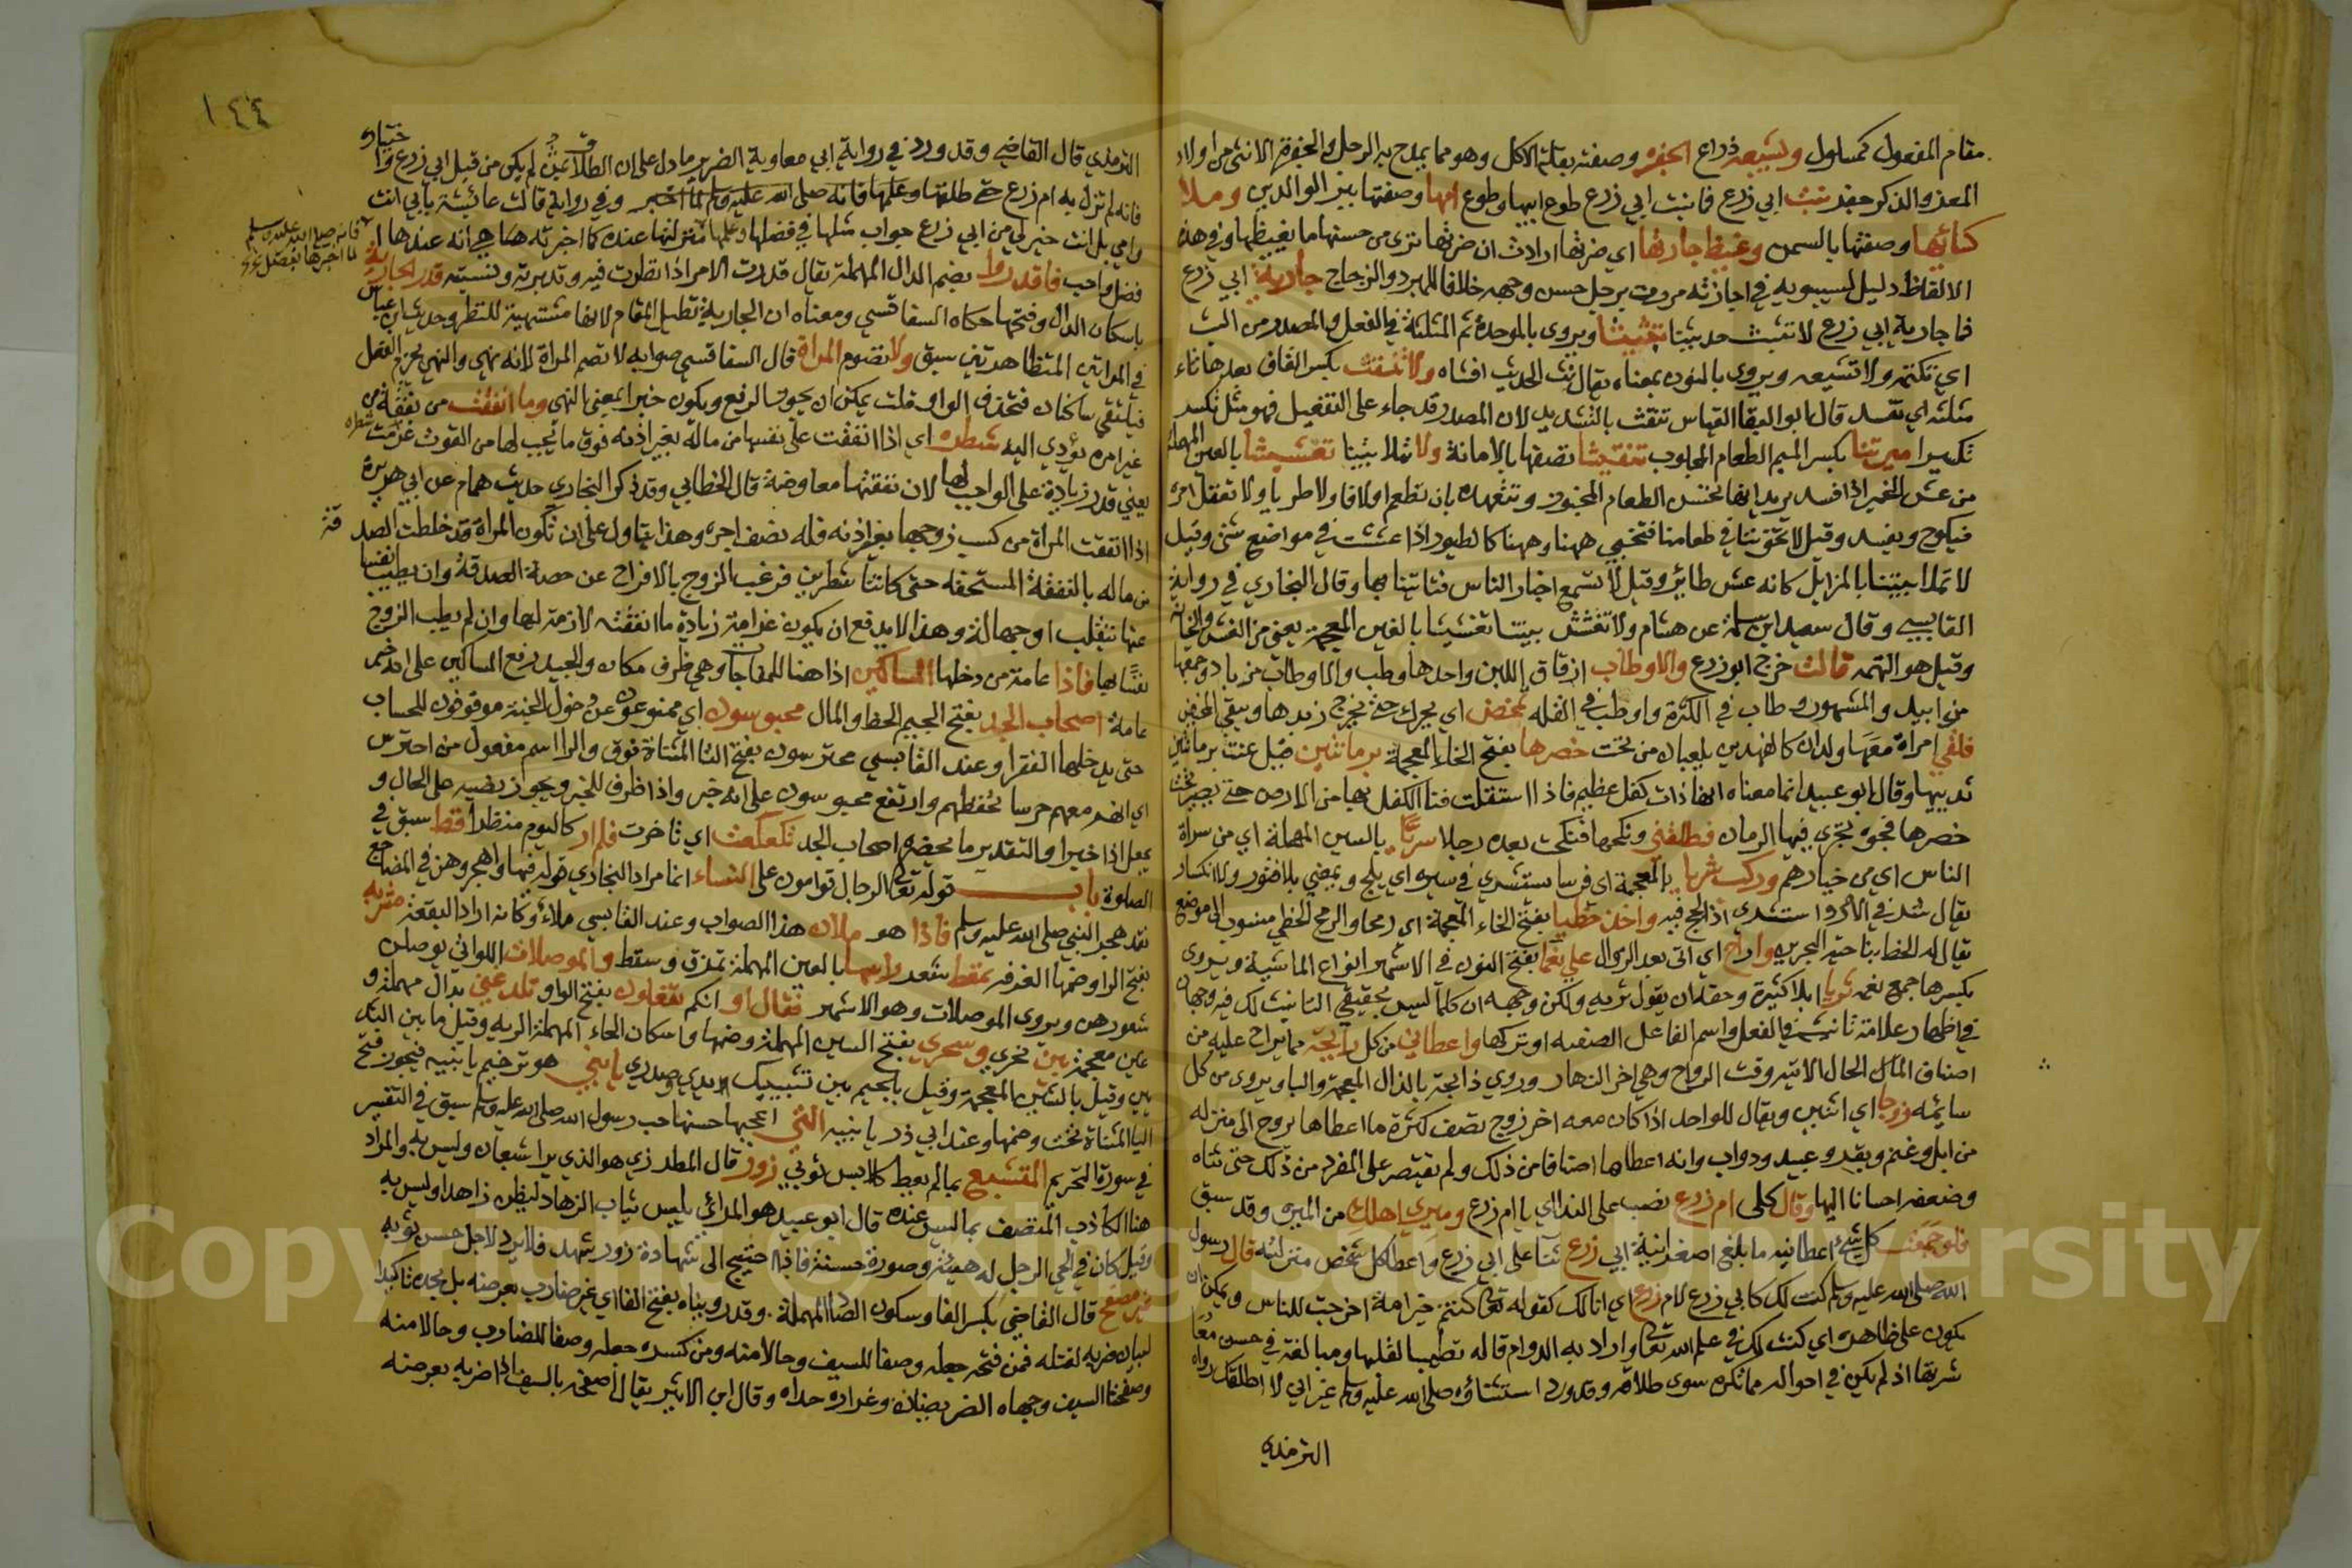 مقام المفعول كمسلول ويشبعه ذراع الجفره وصفته بقلة الاكل وهو مما يمدح به الرجل والجفرة الانثى من اولاد
المعز والذكر جفر بنت ابي زرع فما بنت ابي زرع طوع ابيها وطوع امها وصفتها ببر الوالدين وملا
كسائها وصفتها بالسمن وغيظ جارتها اي ضرتها ارادت ان ضرتها ترى من حسنها ما يغيظها وفي هذه
الالفاظ دليل لسيبويه في اجازته مررت برجل حسن وجهه خلافا للمبرد والزجاج جارية ابي زرع
فما جارية ابي زرع لا تبث حديثنا تبثيثا ويروى بالموحدة ثم المثلثة في الفعل والمصدر من البث
اي تكتمه ولا تشيعه ويروى بالنون بمعناه يقال نث الحديث افشاه ولا تنقث بكسر القاف بعدها ثاء
مثلثة اي تفسد قال ابو البقا القياس تنقث بالتشديد لان المصدر قد جاء على التفعيل فهو مثل تكسر
تكسيرا ميرتنا بكسر الميم الطعام المجلوب تنقيثا تصفها بالامانة ولا تملا بيتنا تعشيشا بالعين المهملة
من عش الخبز اذا فسد يريد انها تحسن الطعام المخبوز وتتعهده بان تطعم اولا فاولا طريا ولا تغفل امره
فيكوج ويفسد وقيل لا تخوننا في طعامنا فتخبي ههنا وههنا كالطيور اذا عششت في مواضع شتى وقيل
لا تملا بيتنا بالمزابل كانه عش طائر وقيل لا تسمع اخبار الناس فتاتينا بها وقال البخاري في رواية
القابسي وقال سعيد ابن سلمة عن هشام ولا تغشش بيتنا تغشيشا بالغين المعجمة يعني من الغش والخيانة
وقيل هو التهمه قالت خرج ابو زرع والاوطاب ازقاق اللبن واحدها وطب والاوطاب من باد وجمعها
من ابيد والمشهور وطاب في الكثرة واوطب في القله تمخض اي يحرك حتى يخرج زبدها ويبقى المخيض
فلقي امراة معها ولدان كالفهدين يلعبان من تحت خصرها بفتح الخاء المعجمة برمانتين قيل عنت برمانتين
ثدييها وقال ابو عبيد انما معناه انها ذات كفل عظيم فاذا استقلت فتا الكفل بها من الارض حتى يصير تحت
خصرها فجوة تجري فيها الرمان فطلقني ونكحها فنكحت بعده رجلا سريا بالسين المهملة اي من سراة
الناس اي من خيارهم وركب شريا بالمعجمة اي فرسا يستشري في سيره اي يلج ويمضي بلا فتور ولا انكسار
يقال شري في الامر واستشرى اذا لج فيه واخذ خطيا بفتح الخاء المعجمة اي رمحا والرمح الخطي منسوب الى موضع
يقال له الخط بناحية البحرين واراح اي اتى بعد الزوال علي نعما بفتح النون في الاشهر انواع الماشية ويروى
بكسرها جمع نعمه ثريا ابلا كثيرة وحقه ان يقول ثرية ولكن وجهه ان كلما ليس بحقيقي التانيث لك فيه وجهان
في اظهار علامة تانيثه في الفعل واسم الفاعل الصفه او تركها واعطاني من كل رايحة مما يراح عليه من
اصناف المال الحال الاتيه وقت الرواح وهي اخر النهار وروي ذابحة بالذال المعجمة والبا ويروى من كل
سائمه زوجا اي اثنين ويقال للواحد اذا كان معه اخر زوج تصف كثرة ما اعطاها يروح الى منزله
من ابل وغنم وبقر وعبيد ودواب وانه اعطاها اصنافا من ذلك ولم يقتصر على المفرد من ذلك حتى ثناه
وضعفه احسانا اليها وقال كلي ام زرع نصب على النداي يا ام زرع وميري اهلك من الميره وقد سبق
فلو جمعت كل شيء اعطانيه ما بلغ اصغر انية ابي زرع ثنا على ابي زرع واعطا كل شخص منزلته قال رسول
الله صلى الله عليه وسلم كنت لك كابي زرع لام زرع اي انا لك كقوله تعالى كنتم خير امة اخرجت للناس ويمكن ان
يكون على ظاهره اي كنت لك في علم الله تعالى واراد به الدوام قاله تطييبا لقلبها ومبالغة في حسن معا
شرتها اذ لم يكن في احواله ما تكره سوى طلاقه وقد ورد استثناؤه صلى الله عليه وسلم غير اني لا اطلقك رواه
الترمذي
١٤٤
الترمذي قال القاضي وقد ورد في رواية ابي معاوية الضرير ما دل على ان الطلاق لم يكن من قبل ابي زرع واختياره
فانه لم تزل به ام زرع حتى طلقها وعلمها فانه صلى الله عليه وسلم لما اخبر وفي رواية قالت عائشة بابي انت
وامي بل انت خير لي من ابي زرع جواب مثلها في فضلها وعلمها منزلتها عنده كما اخبرته هما هي انه عندها ا
فانه صلى الله عليه وسلم
لما اخبرها بفضل
فضل واحب فاقدروا بضم الدال المهملة يقال قدرت الامر اذا نظرت فيه وتدبرته ونسبته قدر الجارية
باسكان الدال وفتحها حكاه السفاقسي ومعناه ان الجارية تطيل المقام لانها مشتهية للنظر وحديث ابن عباس
في المراتين المتظاهرتين سبق ولا تصوم المراة قال السفاقسي صوابه لا تصم المراة لانه نهى والنهي يجزم الفعل
فيلتقي ساكنان فتحذف الواو قلت يمكن ان يجوز الرفع ويكون خبرا بمعنى النهي وما انفقت من نفقة من
غير امره يؤدي اليه شطره اي اذا انفقت على نفسها من ماله بغير اذنه فوق ما يجب لها من القوت غرمت شطره
يعني قدر زيادة على الواجب لها لان نفقتها معاوضة قال الخطابي وقد ذكر البخاري حديث همام عن ابي هريرة
اذا انفقت المراة من كسب زوجها بغير اذنه فله نصف اجره وهذا يتاول على ان تكون المراة قد خلطت الصدقة
من ماله بالنفقة المستحقه حتى كانتا شطرين فرغب الزوج بالافراج عن حصة الصدقة وان يطيب نفسا
عنها تنقلب اوجهالة وهذا لا يدفع ان يكون غرامة زيادة ما انفقته لازمة لها وان لم يطب الزوج
نفسا بها فاذا عامة من دخلها المساكين اذا هنا للمفاجات وهي ظرف مكان والجيد رفع المساكين على انه خبر
عامة اصحاب الجد بفتح الجيم الحظ والمال محبوسون اي ممنوعون عن دخول الجنة موقوفون للحساب
حتى يدخلها الفقرا وعند القابسي محترسون بفتح التا المثناة فوق والرا اسم مفعول من احترس
اي انهم معهم حرسا يحفظهم وارتفع محبوسون على انه خبر واذا ظرف للخبر ويجوز نصبه على الحال و
يجعل اذا خبرا والتقدير ما يحضره اصحاب الجد تكعكعت اي تاخرت فلم ار كاليوم منظرا قط سبق في
الصلوة باب قوله تعالى الرجال قوامون على النساء انما مراد البخاري قوله فيها واهجروهن في المضاجع
فقد هجر النبي صلى الله عليه وسلم فاذا هو ملان هذا الصواب وعند القابسي ملاى وكانه اراد البقعة مشربه
بفتح الرا وضمها الغرفه تمقط شعر راسها بالعين المهملة تمزق وسقط والموصلات اللواتي يوصلن
شعورهن ويروى الموصلات وهو الاشهر فقال او انكم تفعلون بفتح الواو تلدغني بدال مهملة و
عين معجمة بين نحري وسحري بفتح السين المهملة وضمها واسكان الحاء المهملة الريه وقيل ما بين الثد
يين وقيل بالشين المعجمة وقيل بالجيم بين تشبيك ايدي وصدري يا بني هو ترخيم يا بنيه فيجوز فتح
اليا المثناة تحت وضمها وعند ابي ذر يا بنيه التي اعجبها حسنها حب رسول الله صلى الله عليه وسلم سبق في التفسير
في سورة التحريم المتشبع بما لم يعط كلابس ثوبي زور قال المطرزي هو الذي يرا شبعان وليس به والمراد
هنا الكاذب المتصف بما ليس عنده قال ابو عبيد هو المرائي يلبس ثياب الزهاد ليظن زاهدا وليس به
وقيل كان في الحي الرجل له هيئة وصورة حسنة فاذا احتيج الى شهادة زور شهد فلا يرد لاجل حسن ثوبه
غير مصفح قال القاضي بكسر الفا وسكون الصاد المهملة وقد رويناه بفتح الفا اي غير ضارب بعرضه بل بحده تاكيدا
لبيان ضربه لقتله فمن فتحه جعله وصفا للسيف وحالا منه ومن كسره جعله وصفا للضارب وحالا منه
وصفحتا السيف وجهاه العريضان وغراره حداه وقال ابن الاثير يقال اصفحه بالسيف اذا ضربه بعرضه
Copyright © King Saud University